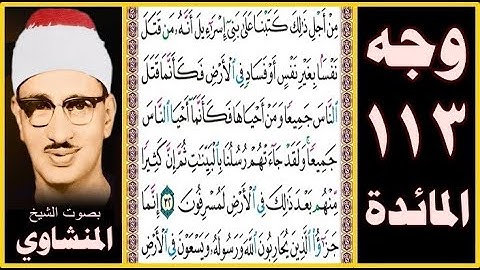 وجه
١١٣
المائدة
مِنْ أَجْلِ ذَٰلِكَ كَتَبْنَا عَلَىٰ بَنِىٓ إِسْرَٰٓءِيلَ أَنَّهُۥ مَن قَتَلَ
نَفْسًۢا بِغَيْرِ نَفْسٍ أَوْ فَسَادٍ فِى ٱلْأَرْضِ فَكَأَنَّمَا قَتَلَ
ٱلنَّاسَ جَمِيعًا وَمَنْ أَحْيَاهَا فَكَأَنَّمَآ أَحْيَا ٱلنَّاسَ
جَمِيعًا وَلَقَدْ جَآءَتْهُمْ رُسُلُنَا بِٱلْبَيِّنَٰتِ ثُمَّ إِنَّ كَثِيرًا
مِّنْهُم بَعْدَ ذَٰلِكَ فِى ٱلْأَرْضِ لَمُسْرِفُونَ ٣٢ إِنَّمَا
جَزَٰٓؤُا۟ ٱلَّذِينَ يُحَارِبُونَ ٱللَّهَ وَرَسُولَهُۥ وَيَسْعَوْنَ فِى ٱلْأَرْضِ
بصوت الشيخ
المنشاوي